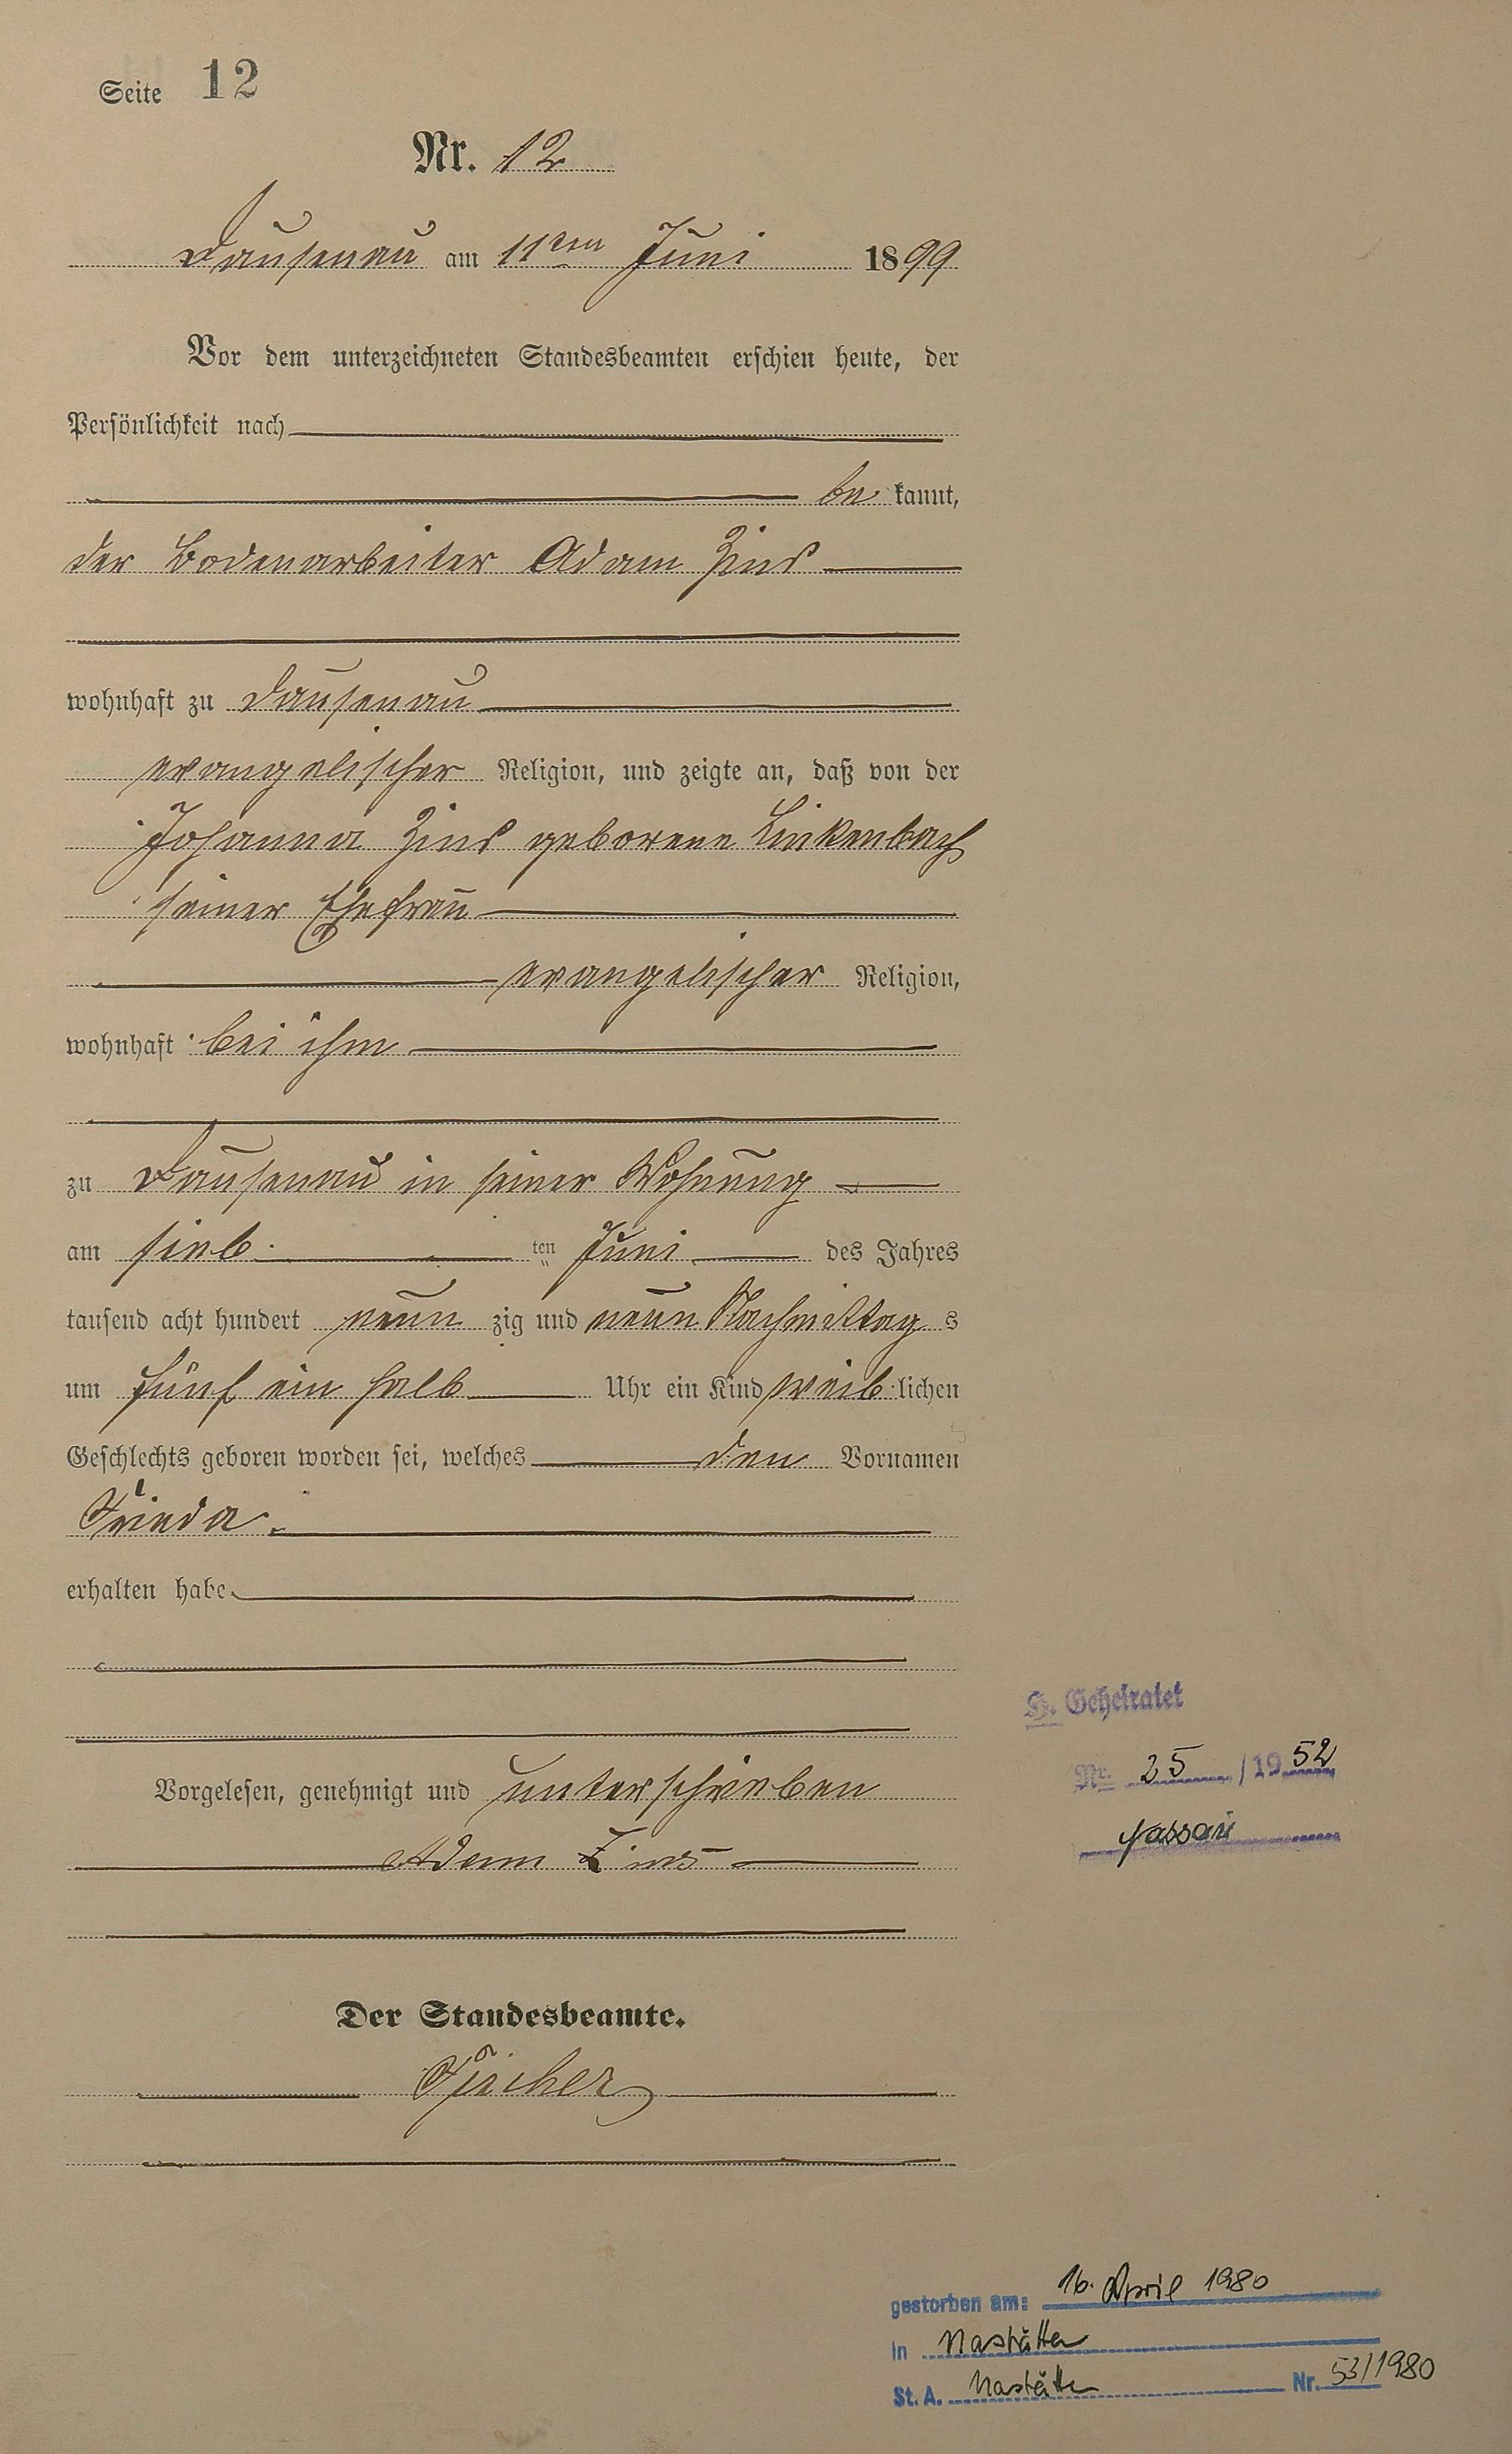 Seite 12
Nr. 12
Dausenau am 11ten Juni 1899
Vor dem unterzeichneten Standesbeamten erschien heute, der
Persönlichkeit nach
be kannt,
der Bodenarbeiter Adam Zins
wohnhaft zu Dausenau
evangelischer Religion, und zeigte an, daß von der
Johanna Zins geborene Linkenbach
seiner Ehefrau
evangelischer Religion,
wohnhaft bei ihm
zu Dausenau in seiner Wohnung
am sieb ten Juni des Jahres
tausend acht hundert neun zig und neun Nachmittag s
um fünf ein halb Uhr ein Kind weib lichen
Geschlechts geboren worden sei, welches den Vornamen
Frieda
erhalten habe
Vorgelesen, genehmigt und unterschrieben
Adam Zins
Der Standesbeamte.
H. Geheiratet
Nr. 25 /1952
Nassau
gestorben am: 16. April 1980
in Nastätten
St. A. Nastätten Nr. 53/1980